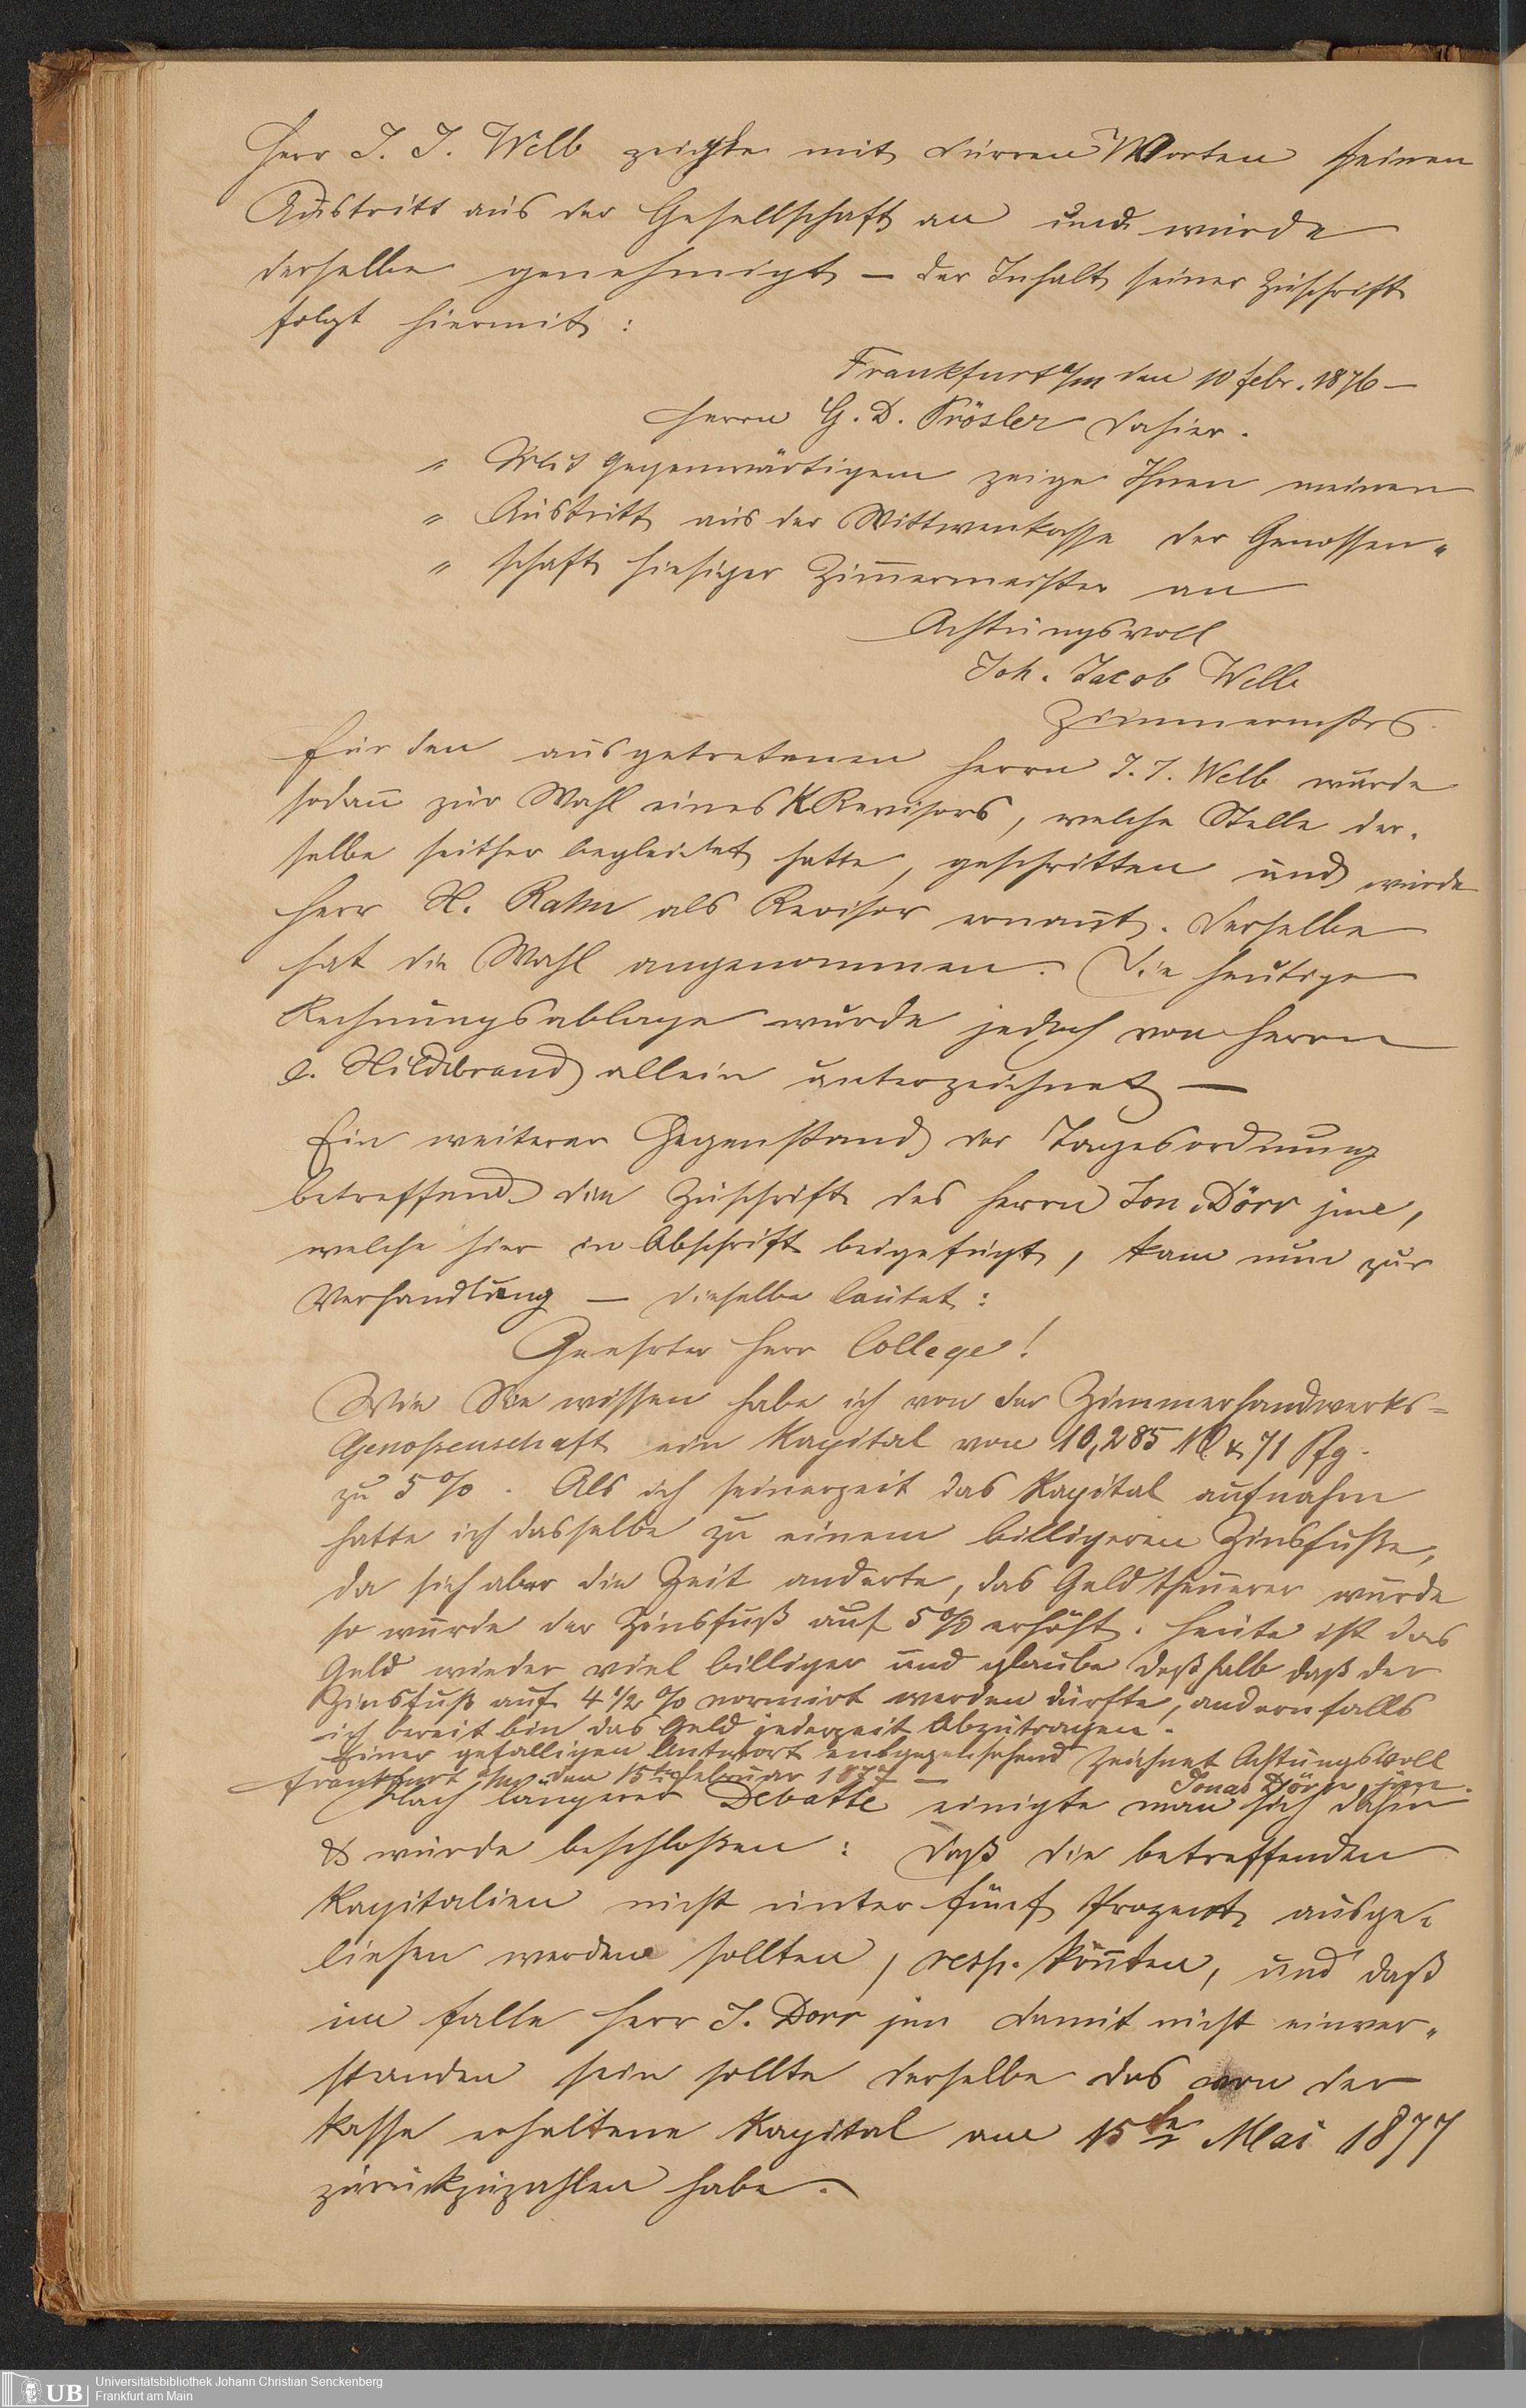 Herr J. J. Welb zeigte mit dürren Worten seinen
Austritt aus der Gesellschaft an und wurde
derselbe genehmigt — der Inhalt seiner Zuschrift
folgt hiermit:
Frankfurt a/m den 10 febr. 1876 —
Herrn G. D. Prösler dahier.
" Mit Gegenwärtigem zeige Ihnen meinen
" Austritt aus der Wittwenkasse der Genossen"
" schaft hiesiger Zimmermeister an
Achtungsvoll
Joh. Jacob Welb
Zimmermstr.
Für den ausgetretenen Herrn J. J. Welb wurde
sodann zur Wahl eines Revisors, welche Stelle der-
selbe seither begleidet hatte, geschritten und wurde
Herr H. Rahn als Revisor ernannt. Derselbe
hat die Wahl angenommen. Die heutige
Rechnungsablage wurde jedoch von Herrn
C. Hildebrand allein unterzeichnet —
Ein weiterer Gegenstand der Tagesordnung
betreffend die Zuschrift des Herrn Jon. Dörr jun,
welche hier in Abschrift beigefügt, kam nun zur
Verhandlung — dieselbe lautet:
Geehrter Herr College!
Wie Sie wissen habe ich von der Zimmerhandwerks=
Genoßenschaft ein Kapital von 10,285 M. & 71 Pfg.
zu 5%. Als ich seinerzeit das Kapital aufnahm
hatte ich dasselbe zu einem billigeren Zinsfuße,
da sich aber die Zeit anderte, das Geld theuerer wurde
so wurde der Zinsfuß auf 5% erhöht. Heute ist das
Geld wieder viel billiger und glaube deßhalb daß der
Zinsfuß auf 4½% normirt werden dürfte, andernfalls
ich bereit bin das Geld jederzeit Abzutragen.
Einer gefalligen Antwort entgegensehend zeichnet Achtungsvoll
Frankfurt a/m den 15ten Februar 1877 — Jonas Dörr jun.
Nach langerer Debatte einigte man sich dahin
& wurde beschloßen: daß die betreffenden
Kapitalien nicht unter fünf Prozent ausge-
liehen werden sollten, resp. könnten, und daß
im Falle Herr J. Dorr jun damit nicht einver"
standen sein sollte derselbe das von der
Kasse erhaltene Kapital am 15ten Mai 1877
zurückzuzahlen habe.
UB
Universitätsbibliothek Johann Christian Senckenberg
Frankfurt am Main